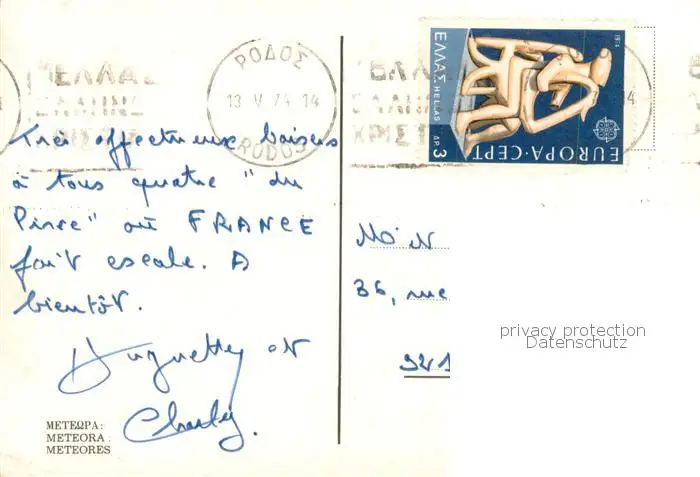 ΡΟΔΟΣ
13 V 74 14
RODOS
ΕΛΛΑΣ HELLAS ΔΡ. 3
1974
EUROPA · CEPT
14
Très affectueux baisers
à tous quatre "du
Pirée" où FRANCE
fait escale. A
bientôt.
Huguette et
Charley.
ΜΕΤΕΩΡΑ:
METEORA:
METEORES
36, rue
921
privacy protection
Datenschutz